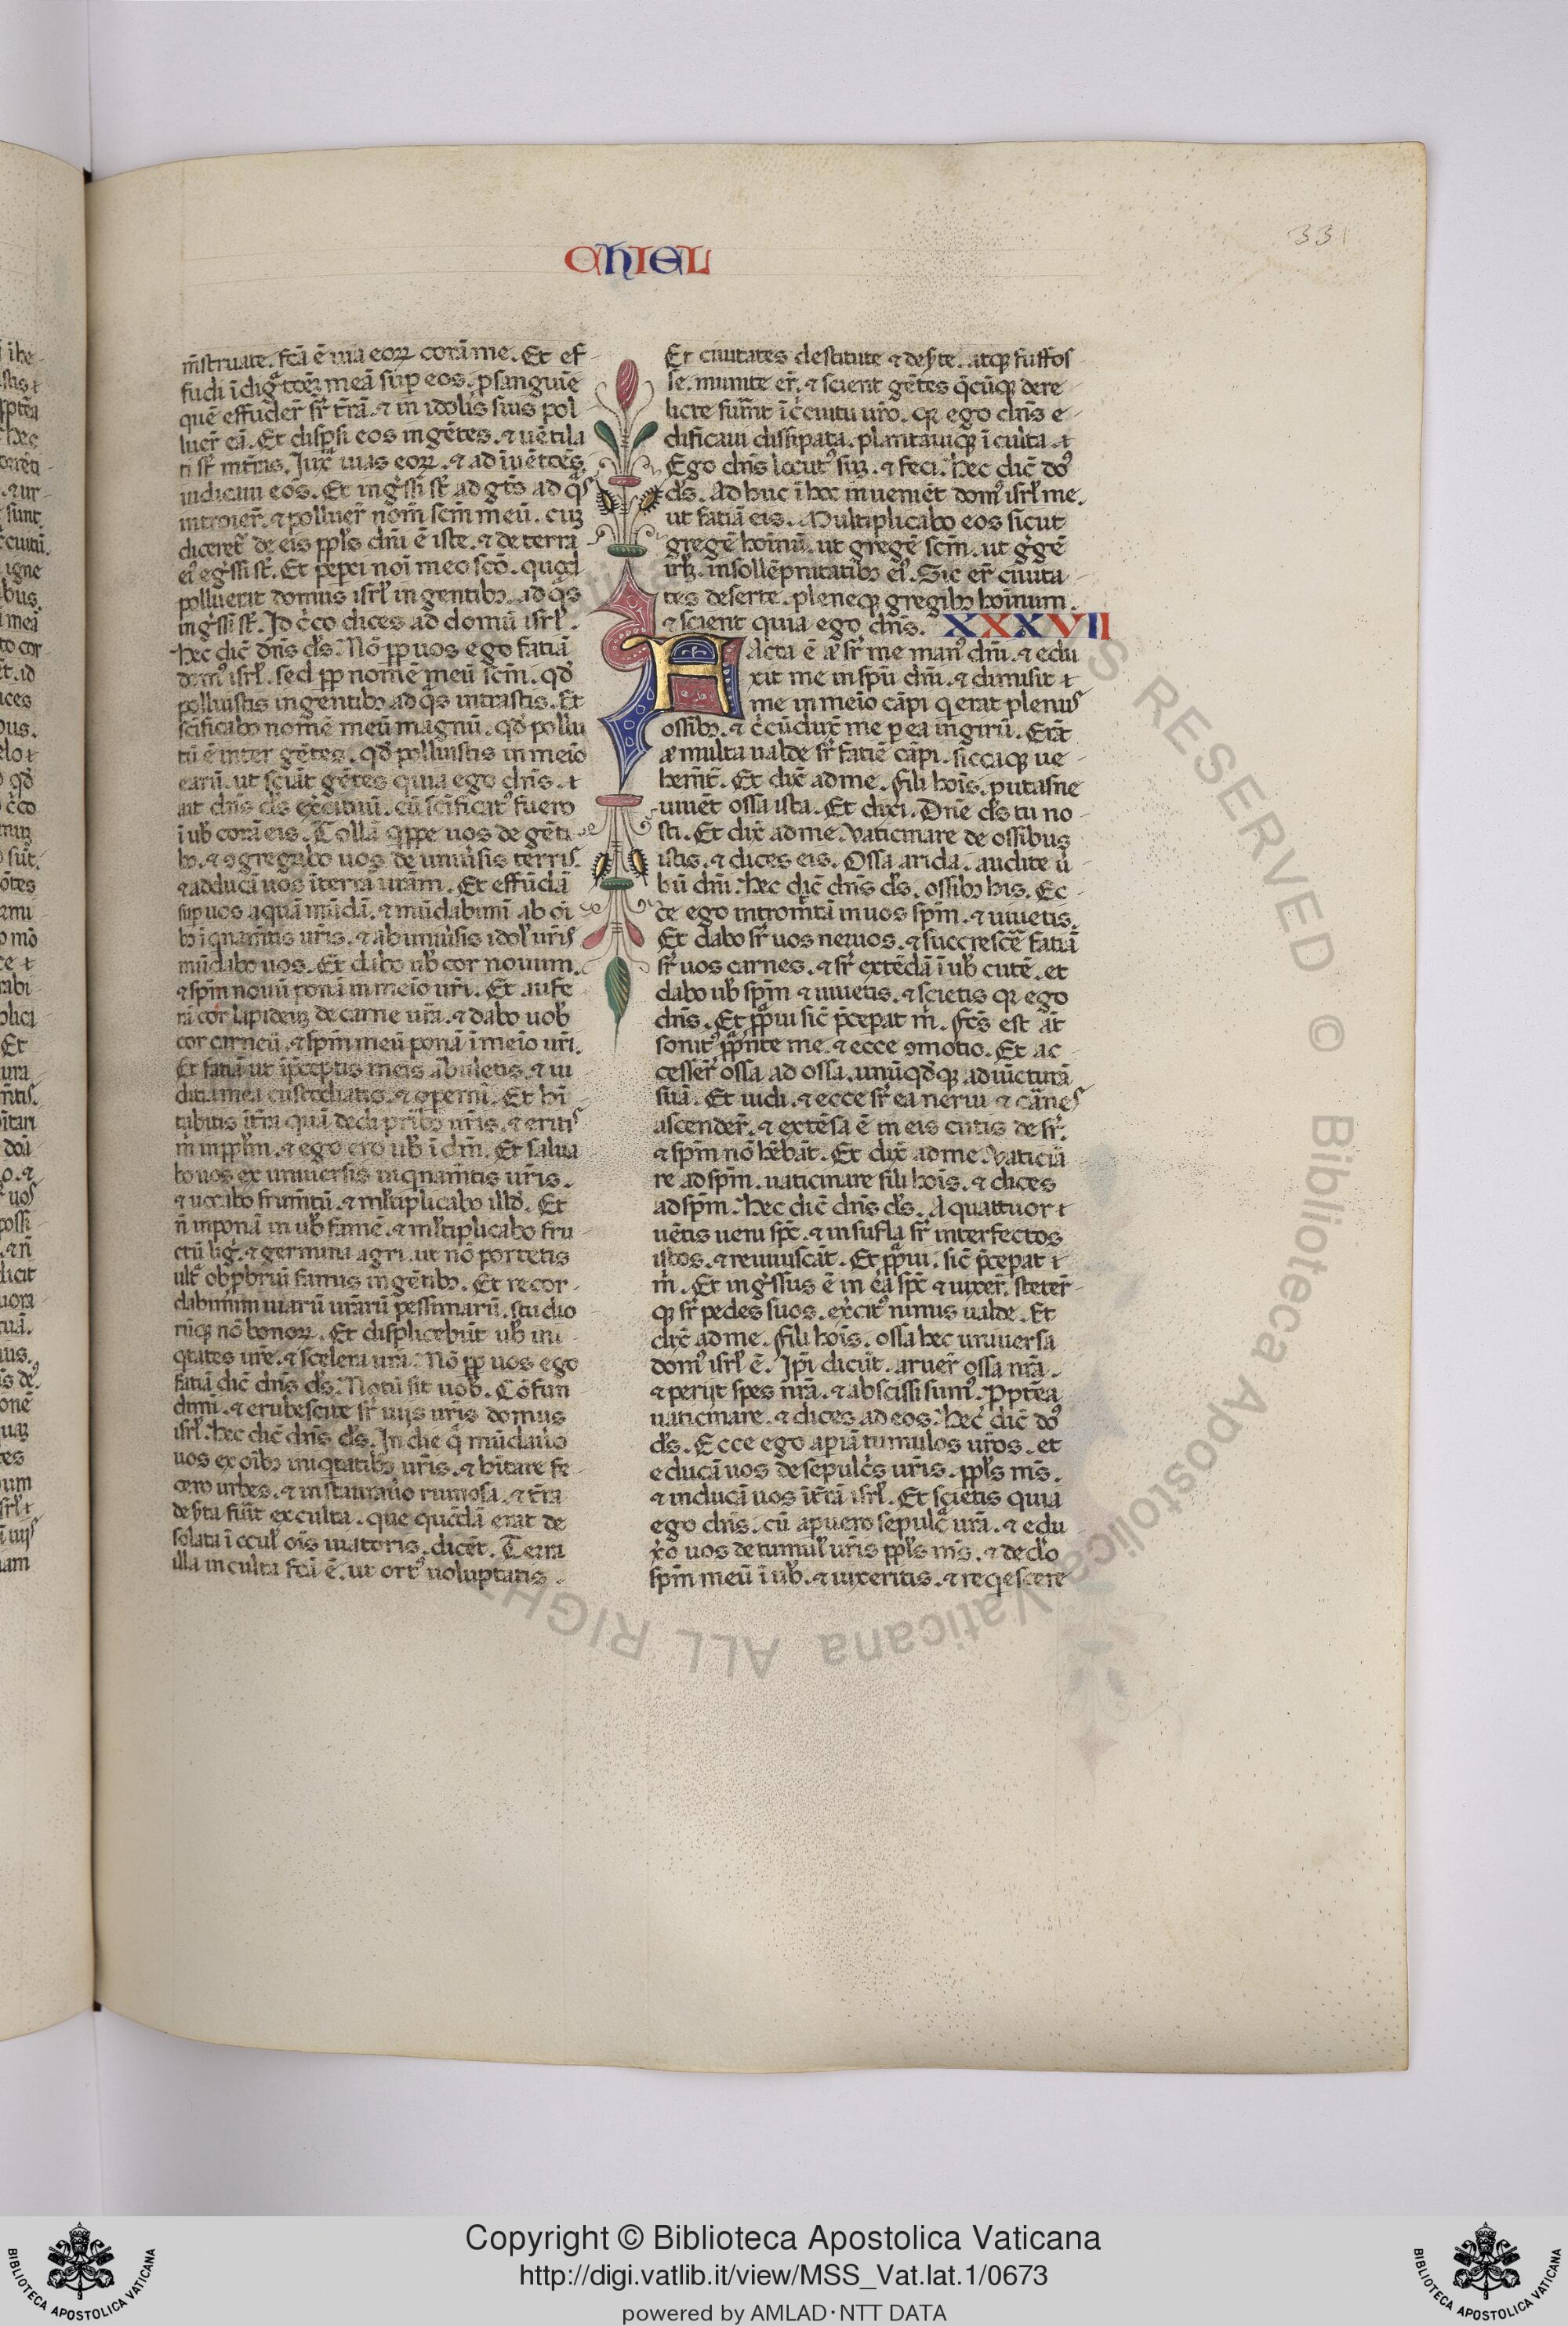 CHIEL
331
m̄struate. fcā ē uia eoꝝ corā me. Et ef
fudi ī dig̃tōeꝫ meā sup eos. p sanguīe
quē effuder̄ sr̄ t̄rā. ⁊ in idolis suis pol
luer̄ eā. Et dispsi eos in gētes. ⁊ uētila
ti st̄ īt̄ras. Iuxͣ uias eoꝝ. ⁊ ad īuētōēs
iudicaui eos. Et ing̃ssi st̄ ad gt̄s ad q̃s
introier̄. ⁊ polluer̄ nom̄ scm̄ meū. cuꝫ
diceret̄ de eis ppl̄s dn̄i ē iste. ⁊ de terra
eiꝰ eg̃ssi st̄. Et pepci noī meo scō. quod
polluerat domus isrl̄ in gentibꝫ. ad q̃s
ing̃ssi st̄. Id c̃co dices ad domū isrl̄.
hec dic̄ dn̄s dꝭs. Nō pp uos ego fatiā
domꝰ isrl̄. sed pp nomē meū scm̄. qđ
polluistis in gentibꝫ ad q̃s intrastis. Et
sc̄ificabo nomē meū magnū. qđ pollu
tū ē inter gētes. qđ polluistis in meīo
earū. ut sciāt gētes quia ego dn̄s. ⁊
ait dn̄s dꝭs exc̃ituū. cū sc̄ificatꝰ fuero
ī ub̄ corā eis. Tollā q̃ppe uos de gēti
bꝫ. ⁊ ꝯgregabo uos de uniũsis terris
⁊ adducā uos ī terrā urām. Et effūdā
sup uos aquā mūdā. ⁊ mūdabimī ab oī
bꝫ īquinam̄tis ur̄is. ⁊ ab uniũsis idol̄ ur̄is
mūdabo uos. Et dabo ub̄ cor nouum.
⁊ spm̄ nouū ponā in meīo ur̄i. Et aufe
rā cor lapideuꝫ de carne ur̄a. ⁊ dabo uob̄
cor carneū. ⁊ spm̄ meū ponā ī meīo ur̄i.
Et fatiā ut ī p̄ceptis meis ābuletis. ⁊ iu
ditia mea custodiatis. ⁊ opemī. Et hī
tabitis ī t̄ra quā dedi pr̄ibꝫ ur̄is. ⁊ eritis
m̄ in ppl̄m. ⁊ ego ero ub̄ ī dm̄. Et salua
bo uos ex uniuersis inquinam̄tis ur̄is.
⁊ uocabo frum̄tū. ⁊ ml̄tiplicabo illđ. Et
n̄ inponā in ub̄ famē. ⁊ ml̄tiplicabo fru
ctū lig̃. ⁊ germina agri. ut nō portetis
ult̃ obp̄briū famis in gētibꝫ. Et recor
dabimini uiarū ur̄arū pessimarū. studio
rūqꝫ nō bonoꝝ. Et displicebūt ub̄ ini
q̃tates ur̄e. ⁊ scelera ur̄a. Nō pp uos ego
fatiā dic̄ dn̄s dꝭs. Notū sit uob̄. Cōfun
dimī. ⁊ erubescite sr̄ uijs ur̄is domus
isrl̄. hec dic̄ dn̄s dꝭs. In die q̃ mūdaũo
uos ex oībꝫ iniq̃tatibꝫ ur̄is. ⁊ hītare fe
cero urbes. ⁊ instauraũo ruinosa. ⁊ t̄ra
desta fuīt exculta. que quodā erat de
solata ī occul̄ oīs uiatoris. dicēt. Terra
illa inculta fcā ē. ut ortꝰ uoluptatis.
Et ciuitates destitute ⁊ deste. atqꝫ suffos
se. munite er̄. ⁊ scient gētes q̄cūqꝫ dere
licte fuīnt ī c̃cuitu ur̄o. qꝛ ego dn̄s e
dificaui dissipata. plantauiqꝫ īculta. ⁊
Ego dn̄s locutꝰ suꝫ. ⁊ feci. hec dic̄ dōꝰ
dꝭs. Adhuc ī hoc inueniēt domꝰ isrl̄ me.
ut fatiā eis. Multiplicabo eos sicut
gregē hoīnū. ut gregē scm̄. ut g̃gē
irl̄ꝫ. in sollēpnitatibꝫ eiꝰ. Sic er̄ ciuita
tes deserte. pleneqꝫ gregibꝫ hoīnum.
⁊ scient quia ego dn̄s. XXXVII
Acta ē aͫ sr̄ me manꝰ dn̄i. ⁊ edu
xit me in spū dn̄i. ⁊ dimisit ⁊
me in meīo cāpi q erat plenus
ossibꝫ. ⁊ c̃cūduxͭ me p ea in girū. Erāt
aͫ multa ualde sr̄ fatiē cāpi. siccaqꝫ ue
hem̄t. Et dixͭ ad me. fili hoīs. putasne
uiuēt ossa ista. Et dixi. Dn̄e dꝭs tu no
sti. Et dixͭ ad me. Vaticinare de ossibus
istis. ⁊ dices eis. Ossa arida. audite ũ
bū dn̄i. hec dic̄ dn̄s dꝭs. ossibꝫ his. Ec
ce ego introm̄tā in uos spm̄. ⁊ uiuetis.
Et dabo sr̄ uos neruos. ⁊ succrescē fatiā
sr̄ uos carnes. ⁊ sr̄ extēdā ī ub̄ cutē. et
dabo ub̄ spm̄ ⁊ uiuetis. ⁊ scietis qꝛ ego
dn̄s. Et pp̄ui sic̄ p̄cepat m̄. Fcs̄ est āt
sonitꝰ pp̄nte me. ⁊ ecce ꝯmotio. Et ac
cesser̄ ossa ad ossa. unūqđqꝫ ad iūcturā
suā. Et uidi. ⁊ ecce sr̄ ea nerui ⁊ carnes
ascender̄. ⁊ extēsa ē in eis cutis desr̄.
⁊ spm̄ nō hēbāt. Et dixͭ ad me. Vaticia
re ad spm̄. uaticinare fili hoīs. ⁊ dices
ad spm̄. hec dic̄ dn̄s dꝭs. A quattuor ⁊
uētis ueni spc̄. ⁊ insufla sr̄ interfectos
istos. ⁊ reuiuiscāt. Et pp̄ui. sic̄ p̄cepat ⁊
m̄. Et ing̃ssus ē in ea spc̄ ⁊ uixer̄. steter̄
qꝫ sr̄ pedes suos. exc̃itꝰ nimis ualde. Et
dixͭ ad me. fili hoīs. ossa hec uniuersa
domꝰ isrl̄ ē. Ipi dicūt. aruer̄ ossa nr̄a.
⁊ perijt spes nr̄a. ⁊ abscissi sumꝰ. Pptea
uaticinare. ⁊ dices ad eos. hec dic̄ dōꝰ
dꝭs. Ecce ego apiā tumulos ur̄os. et
educā uos de sepulc̃s ur̄is. ppl̄s ms̄.
⁊ inducā uos ī t̄rā isrl̄. Et scietis quia
ego dn̄s. cū apuero sepulc̃ ur̄a. ⁊ edu
xo uos de tumul̄ ur̄is ppl̄s ms̄. ⁊ dedo
spm̄ meū ī ub̄. ⁊ uixeritis. ⁊ reqescere
Biblioteca Apostolica Vaticana ALL RIGHTS RESERVED ©
Copyright © Biblioteca Apostolica Vaticana
http://digi.vatlib.it/view/MSS_Vat.lat.1/0673
powered by AMLAD·NTT DATA
BIBLIOTECA APOSTOLICA VATICANA
BIBLIOTECA APOSTOLICA VATICANA